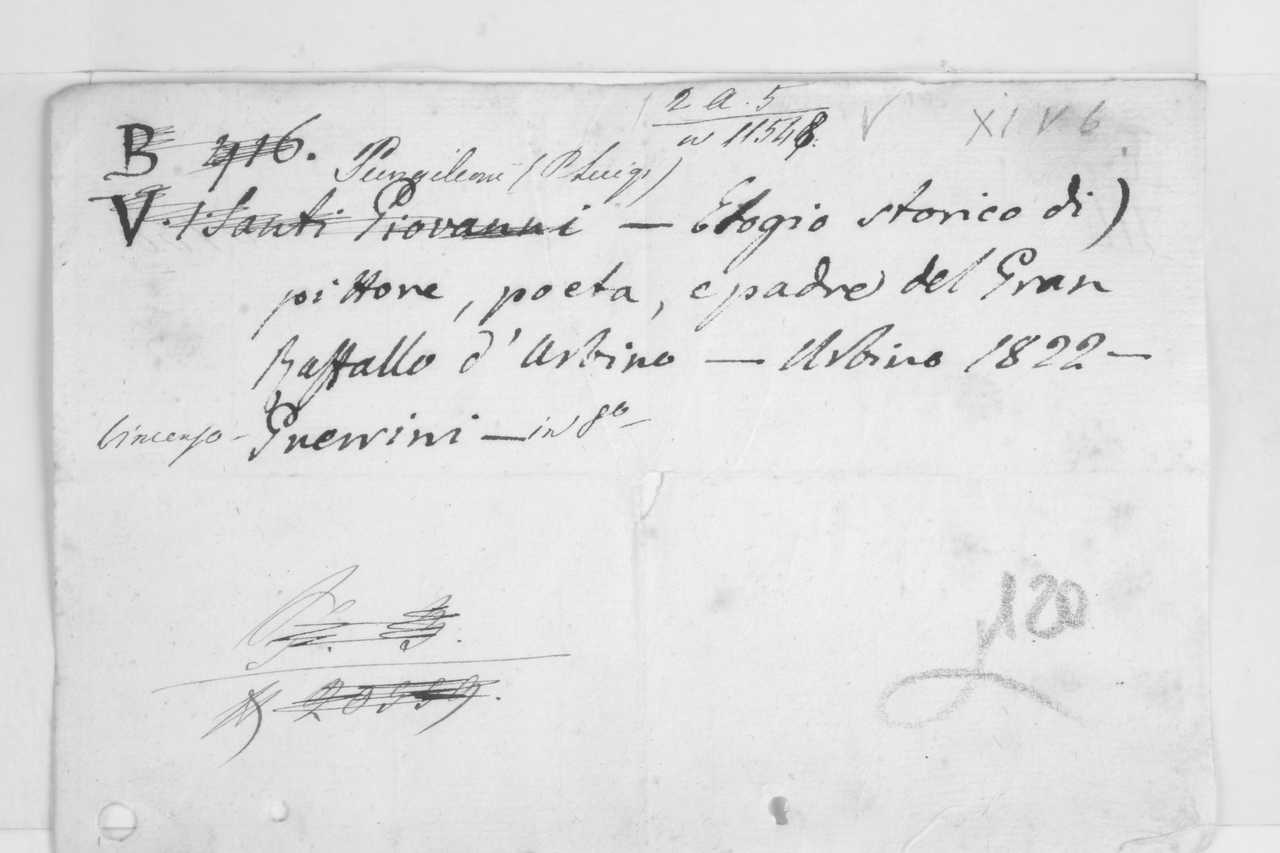 2 A. 5
w 11548. V XI V 6
B 416. Pungileoni (P. Luigi)
V. (Santi Giovanni — Elogio storico di)
pittore, poeta, e padre del Gran
Raffallo d'Urbino — Urbino 1822 —
Vincenzo — Guerrini — in 8º —
120
20559.